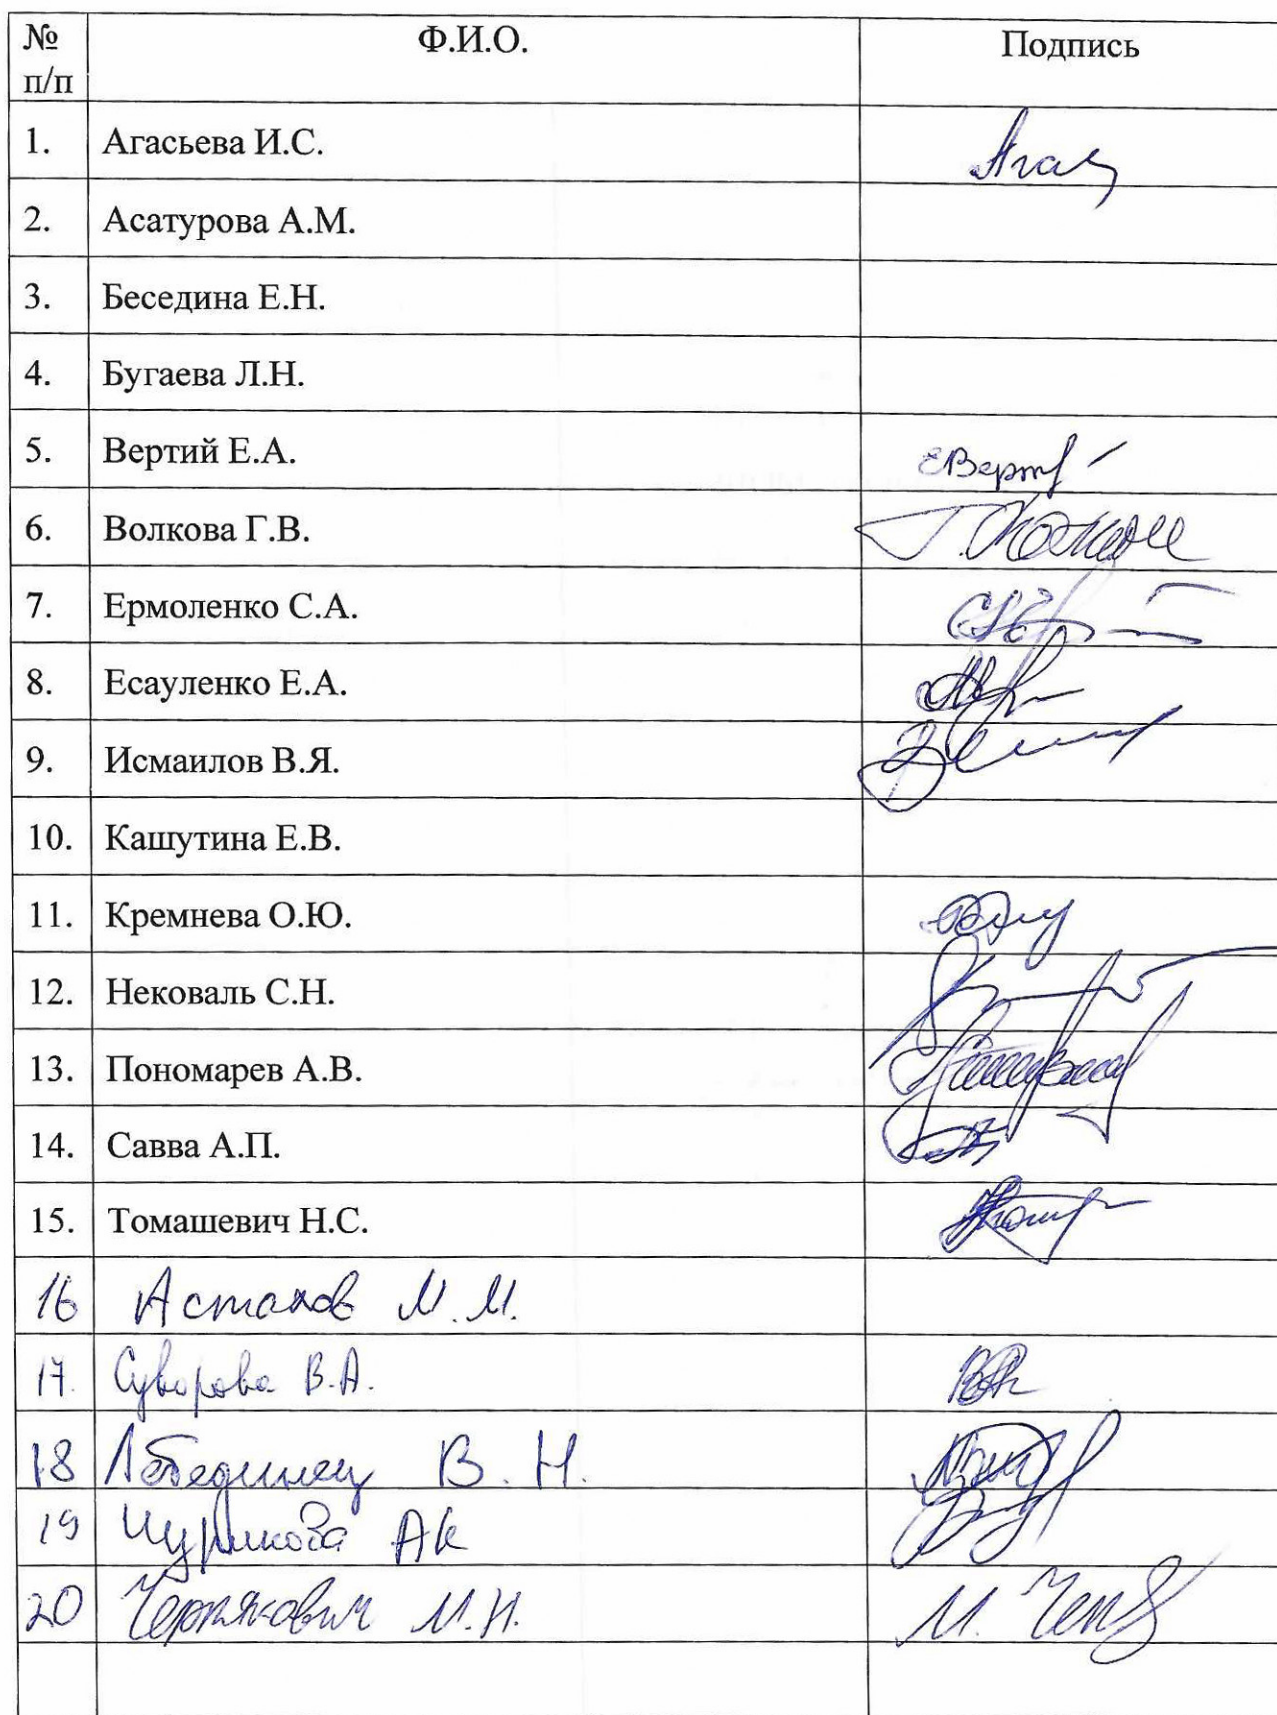 № п/п Ф.И.О. Подпись
1. Агасьева И.С. Агас
2. Асатурова А.М.
3. Беседина Е.Н.
4. Бугаева Л.Н.
5. Вертий Е.А. ЕВерт
6. Волкова Г.В.
7. Ермоленко С.А.
8. Есауленко Е.А.
9. Исмаилов В.Я.
10. Кашутина Е.В.
11. Кремнева О.Ю.
12. Нековаль С.Н.
13. Пономарев А.В.
14. Савва А.П.
15. Томашевич Н.С.
16 Астахов М.М.
17. Суворова В.А.
18 Лебединец В.Н.
19 Чурикова АК
20 М.Н. М.